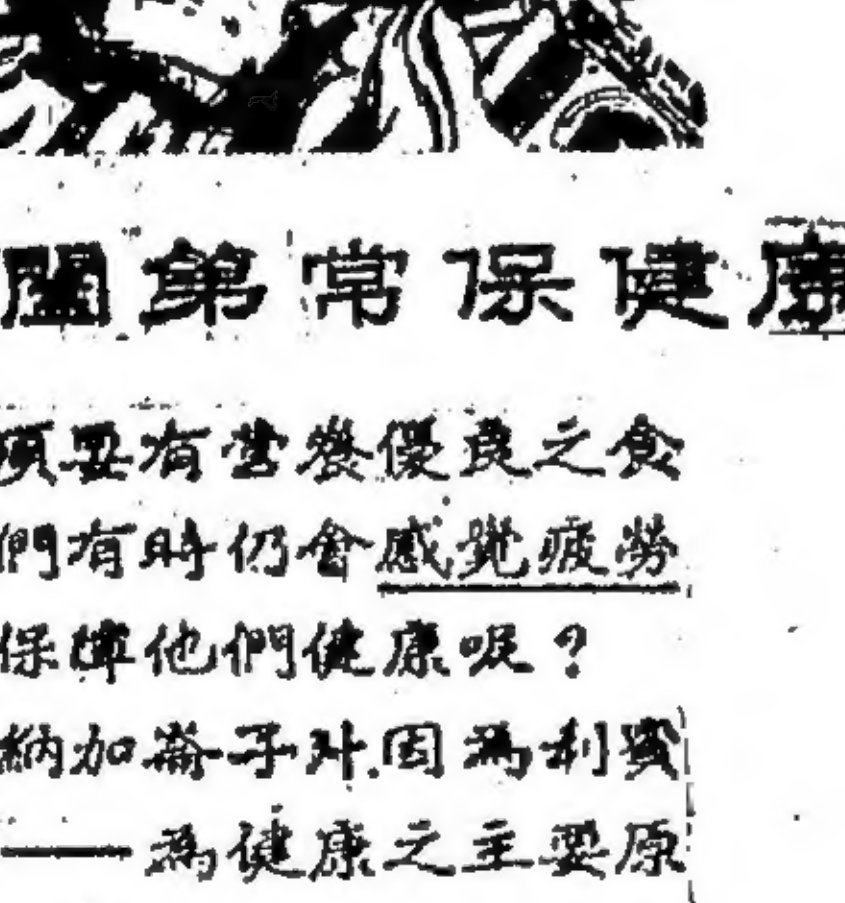 闔第常保健康
須要有營養優良之食
們有時仍會感覺疲勞
保障他們健康呢？
納加崙子外.因為利賓
為健康之主要原